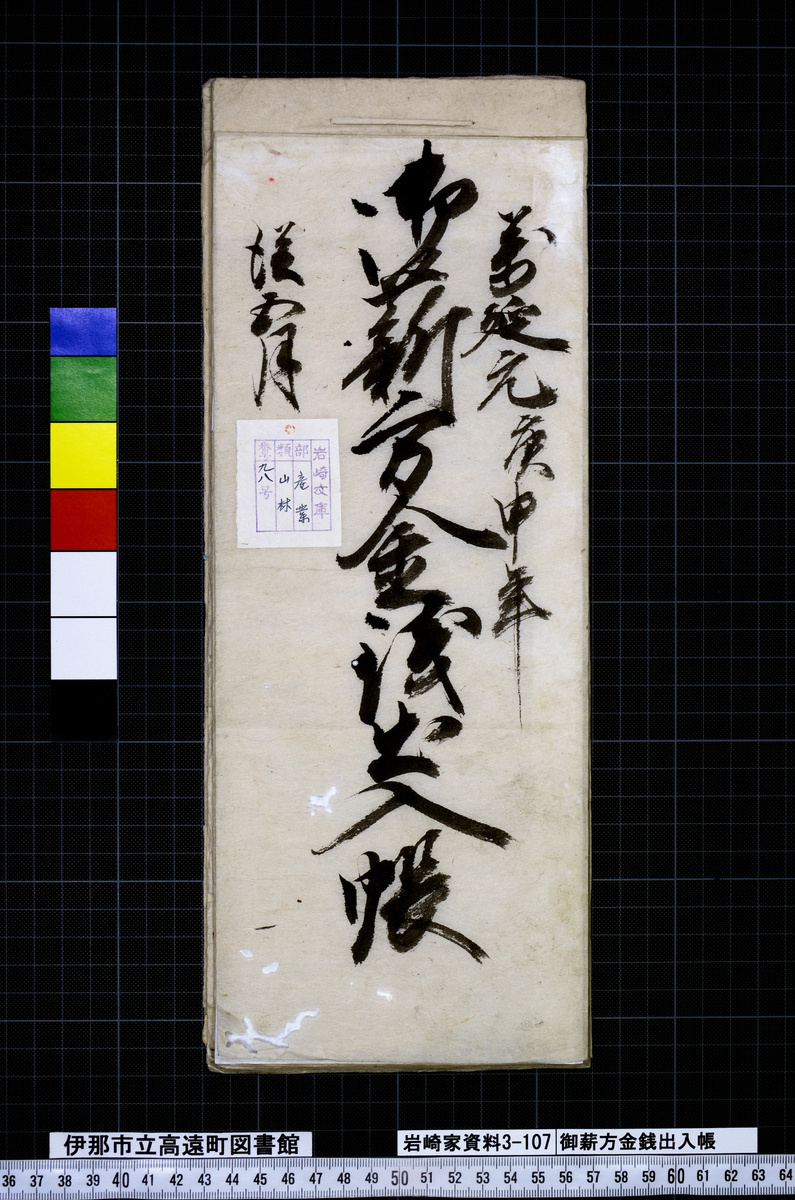 萬延元庚申年
御薪方金銭出入帳
従五月
岩崎文庫
部 産業
類 山林
番号 九八号
伊那市立高遠町図書館
岩崎家資料3-107 御薪方金銭出入帳
36 37 38 39 40 41 42 43 44 45 46 47 48 49 50 51 52 53 54 55 56 57 58 59 60 61 62 63 64